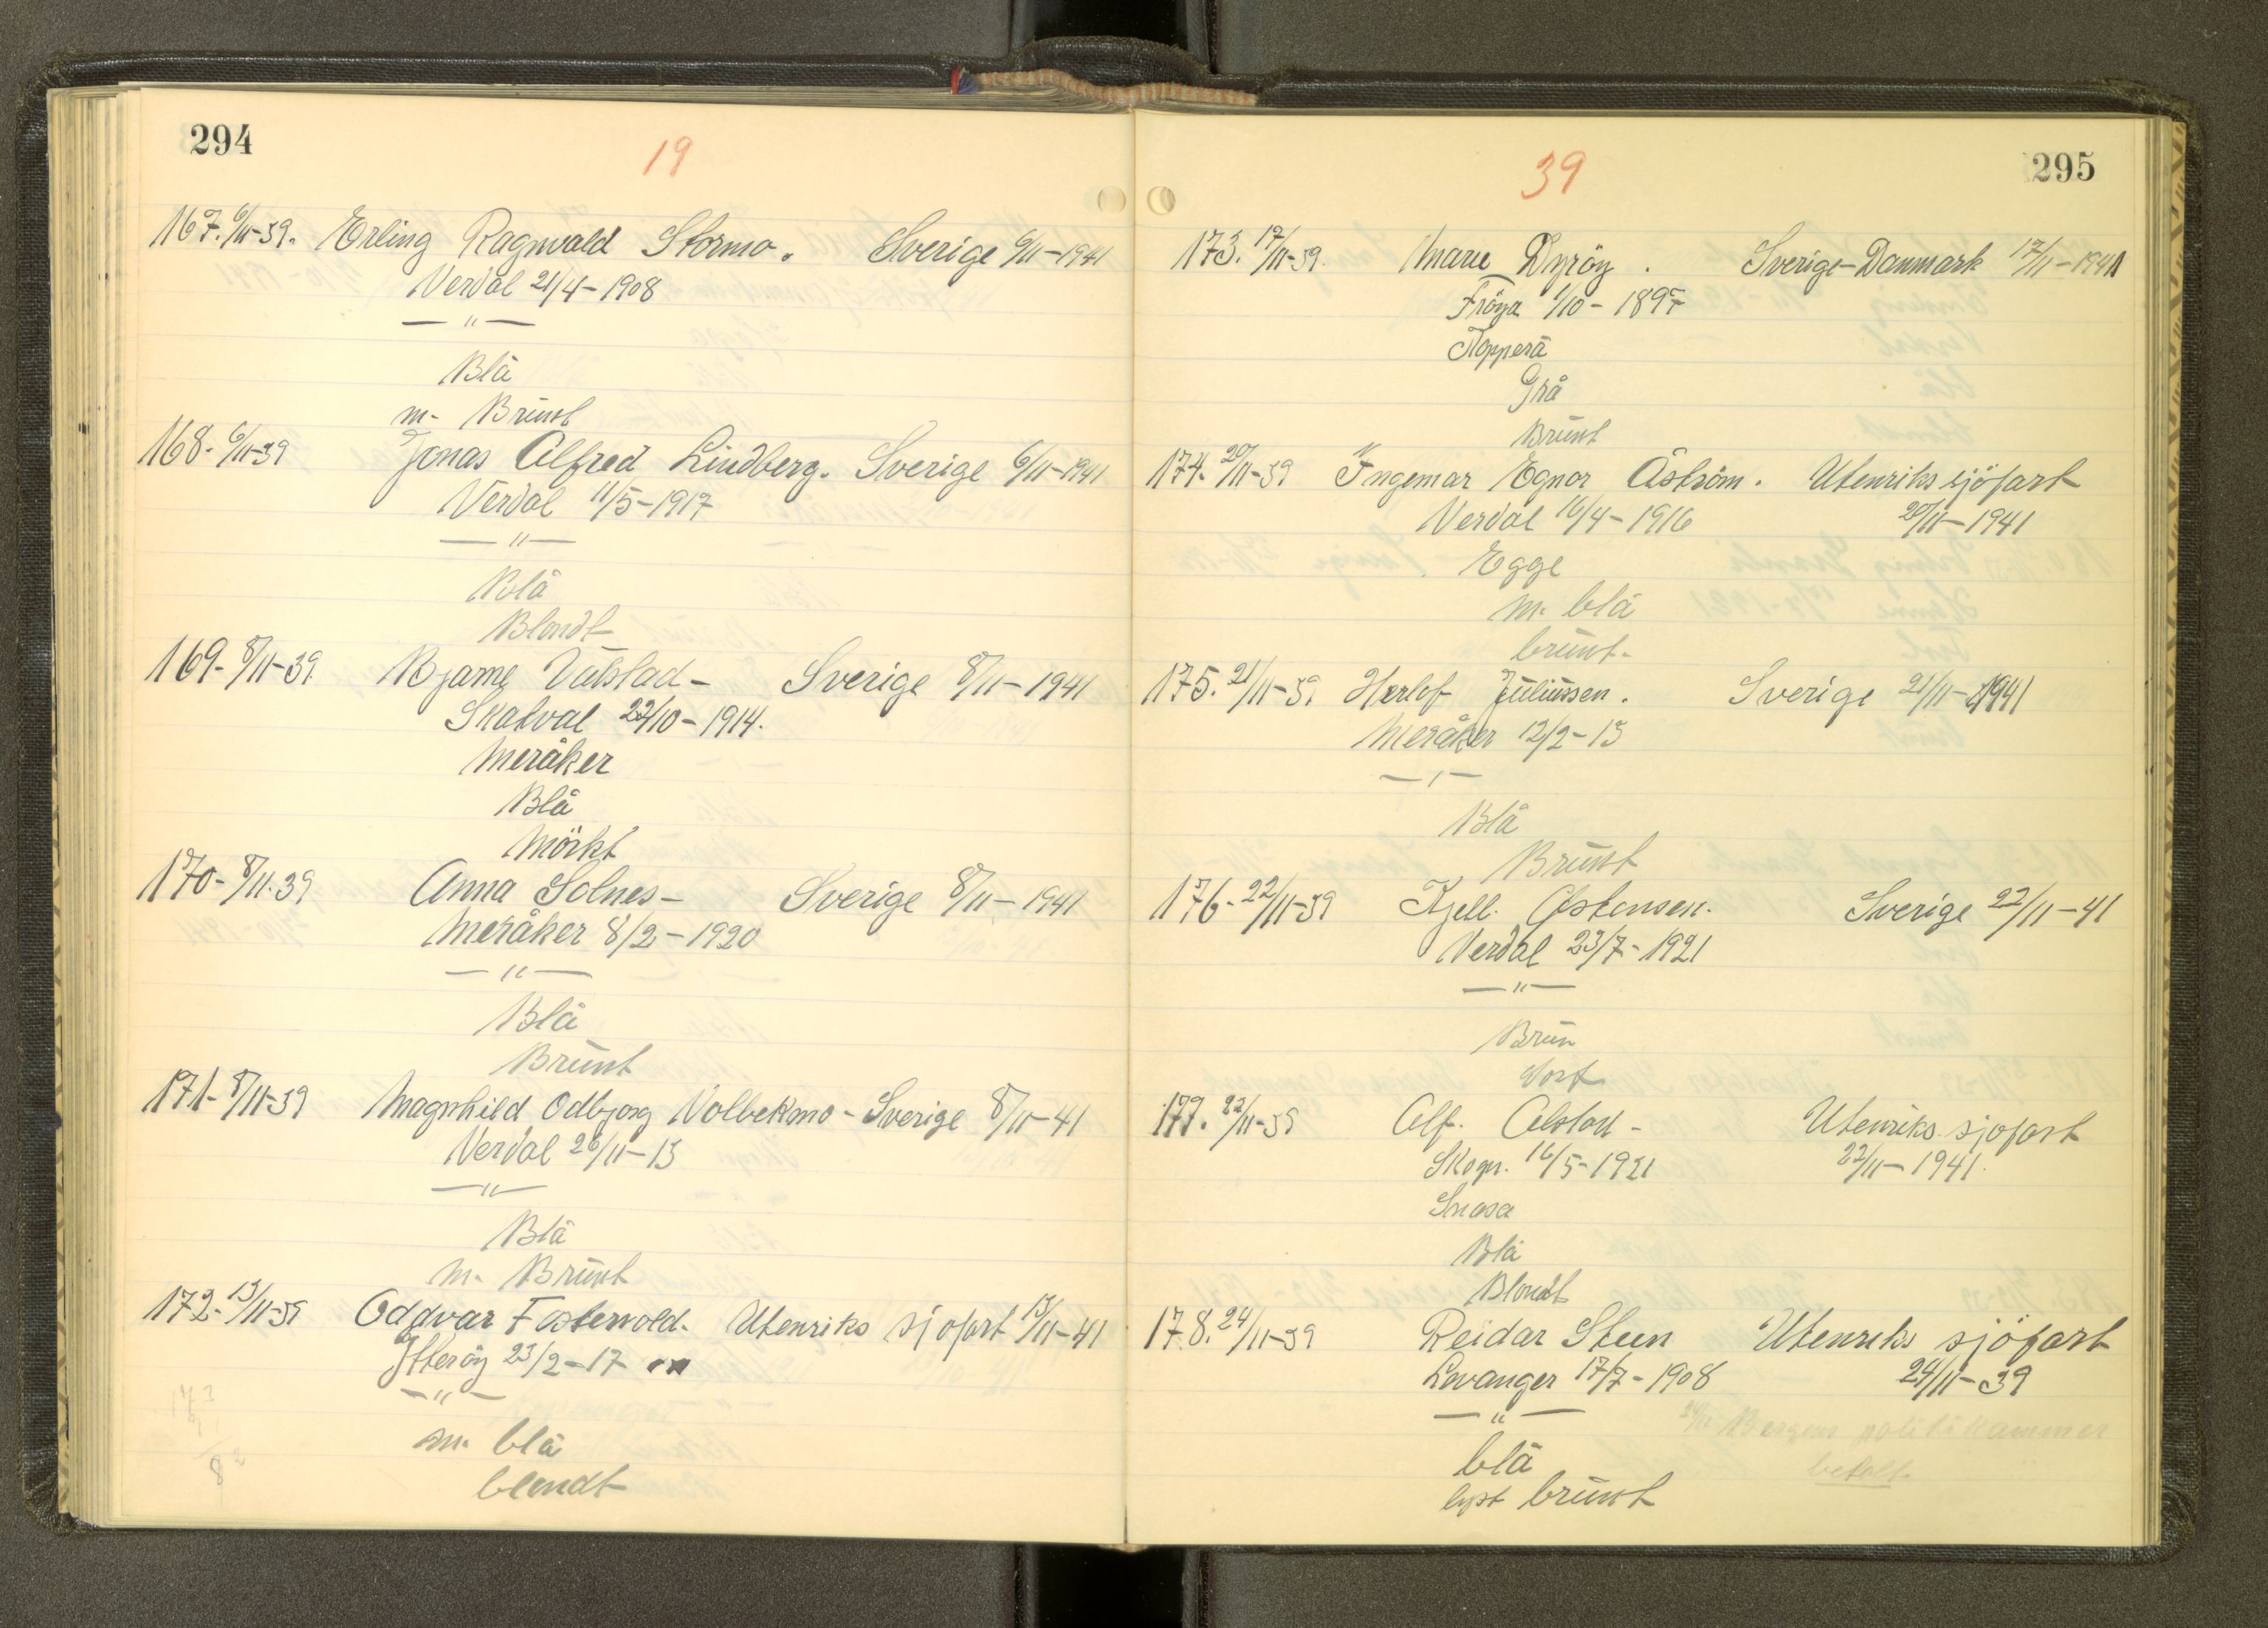 294
19
167. 6/11-39. Erling Ragnvald Stormo. Sverige 6/11-1941
Verdal 21/4-1908
— " —
Blå
m- Brunt
168- 6/11-39 Jonas Alfred Lindberg. Sverige 6/11-1941
Verdal 11/5-1917
— " —
Blå
Blondt
169- 8/11-39. Bjarne Vålstad- Sverige 8/11-1941
Skatval 22/10-1914.
Meråker
Blå
Mörkt
170- 8/11.39 Anna Solnes- Sverige 8/11-1941
Meråker 8/2-1920
— " —
Blå
Brunt
171- 8/11-39 Magnhild Odbjorg Volbekmo- Sverige 8/11-41
Verdal 26/11-13
— " —
Blå
m. Brunt
172- 13/11-39 Oddvar Fostervold. Utenriks sjofart 13/11-41
Ytteröy 23/2-17
— " —
m. blå
blondt
295
39
173. 17/11-39. Marie Dyröy. Sverige-Danmark 17/11-1941
Fröya 1/10-1897
Kopperå
Grå
Brunt
174. 20/11-39 Ingemar Egnor Åström. Utenriks sjöfart
Verdal 16/4-1916 20/11-1941
Egge
m. blå
brunt-
175. 21/11-39. Herlof Juliussen. Sverige 21/11-1941
Meråker 12/2-13
— " —
Blå
Brunt
176- 22/11-39 Kjell. Østensen. Sverige 22/11-41
Verdal 23/7-1921
— " —
Brun
Sort
177. 22/11-39 Alf. Alstad- Utenriks sjofart
Skogn. 16/5-1921 22/11-1941.
Snåsa
Blå
Blondt
178. 24/11-39 Reidar Steen Utenriks sjöfart
Levanger 17/7-1908 24/11-39
— " —
Bergens politikammer
blå
betalt.
lyst brunt